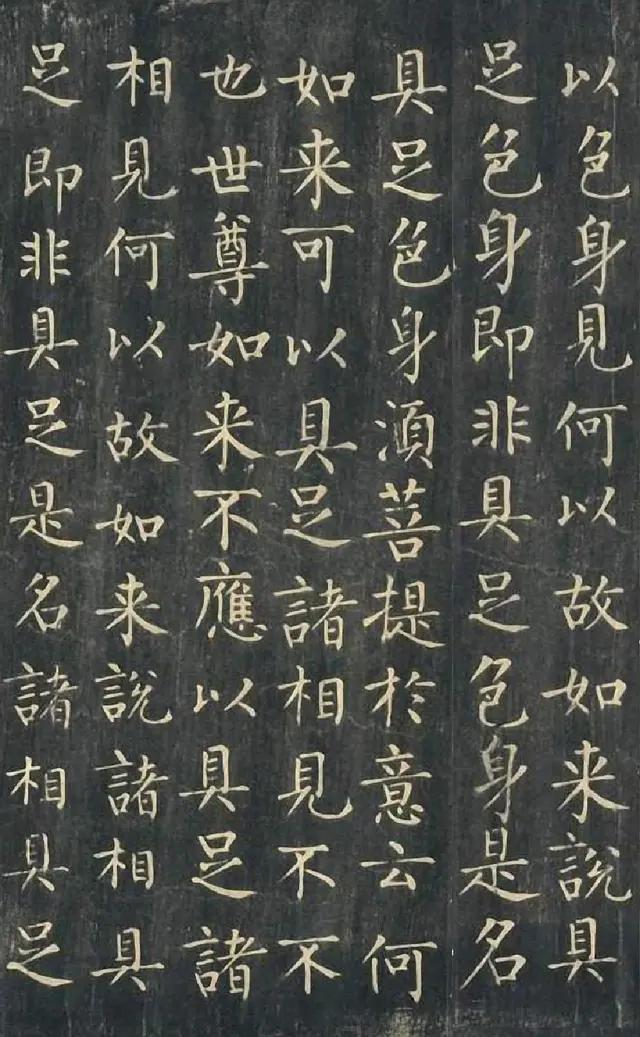 以色身見何以故如来說具
足色身即非具足色身是名
具足色身湏菩提於意云何
如来可以具足諸相見不不
也世尊如来不應以具足諸
相見何以故如来說諸相具
足即非具足是名諸相具足